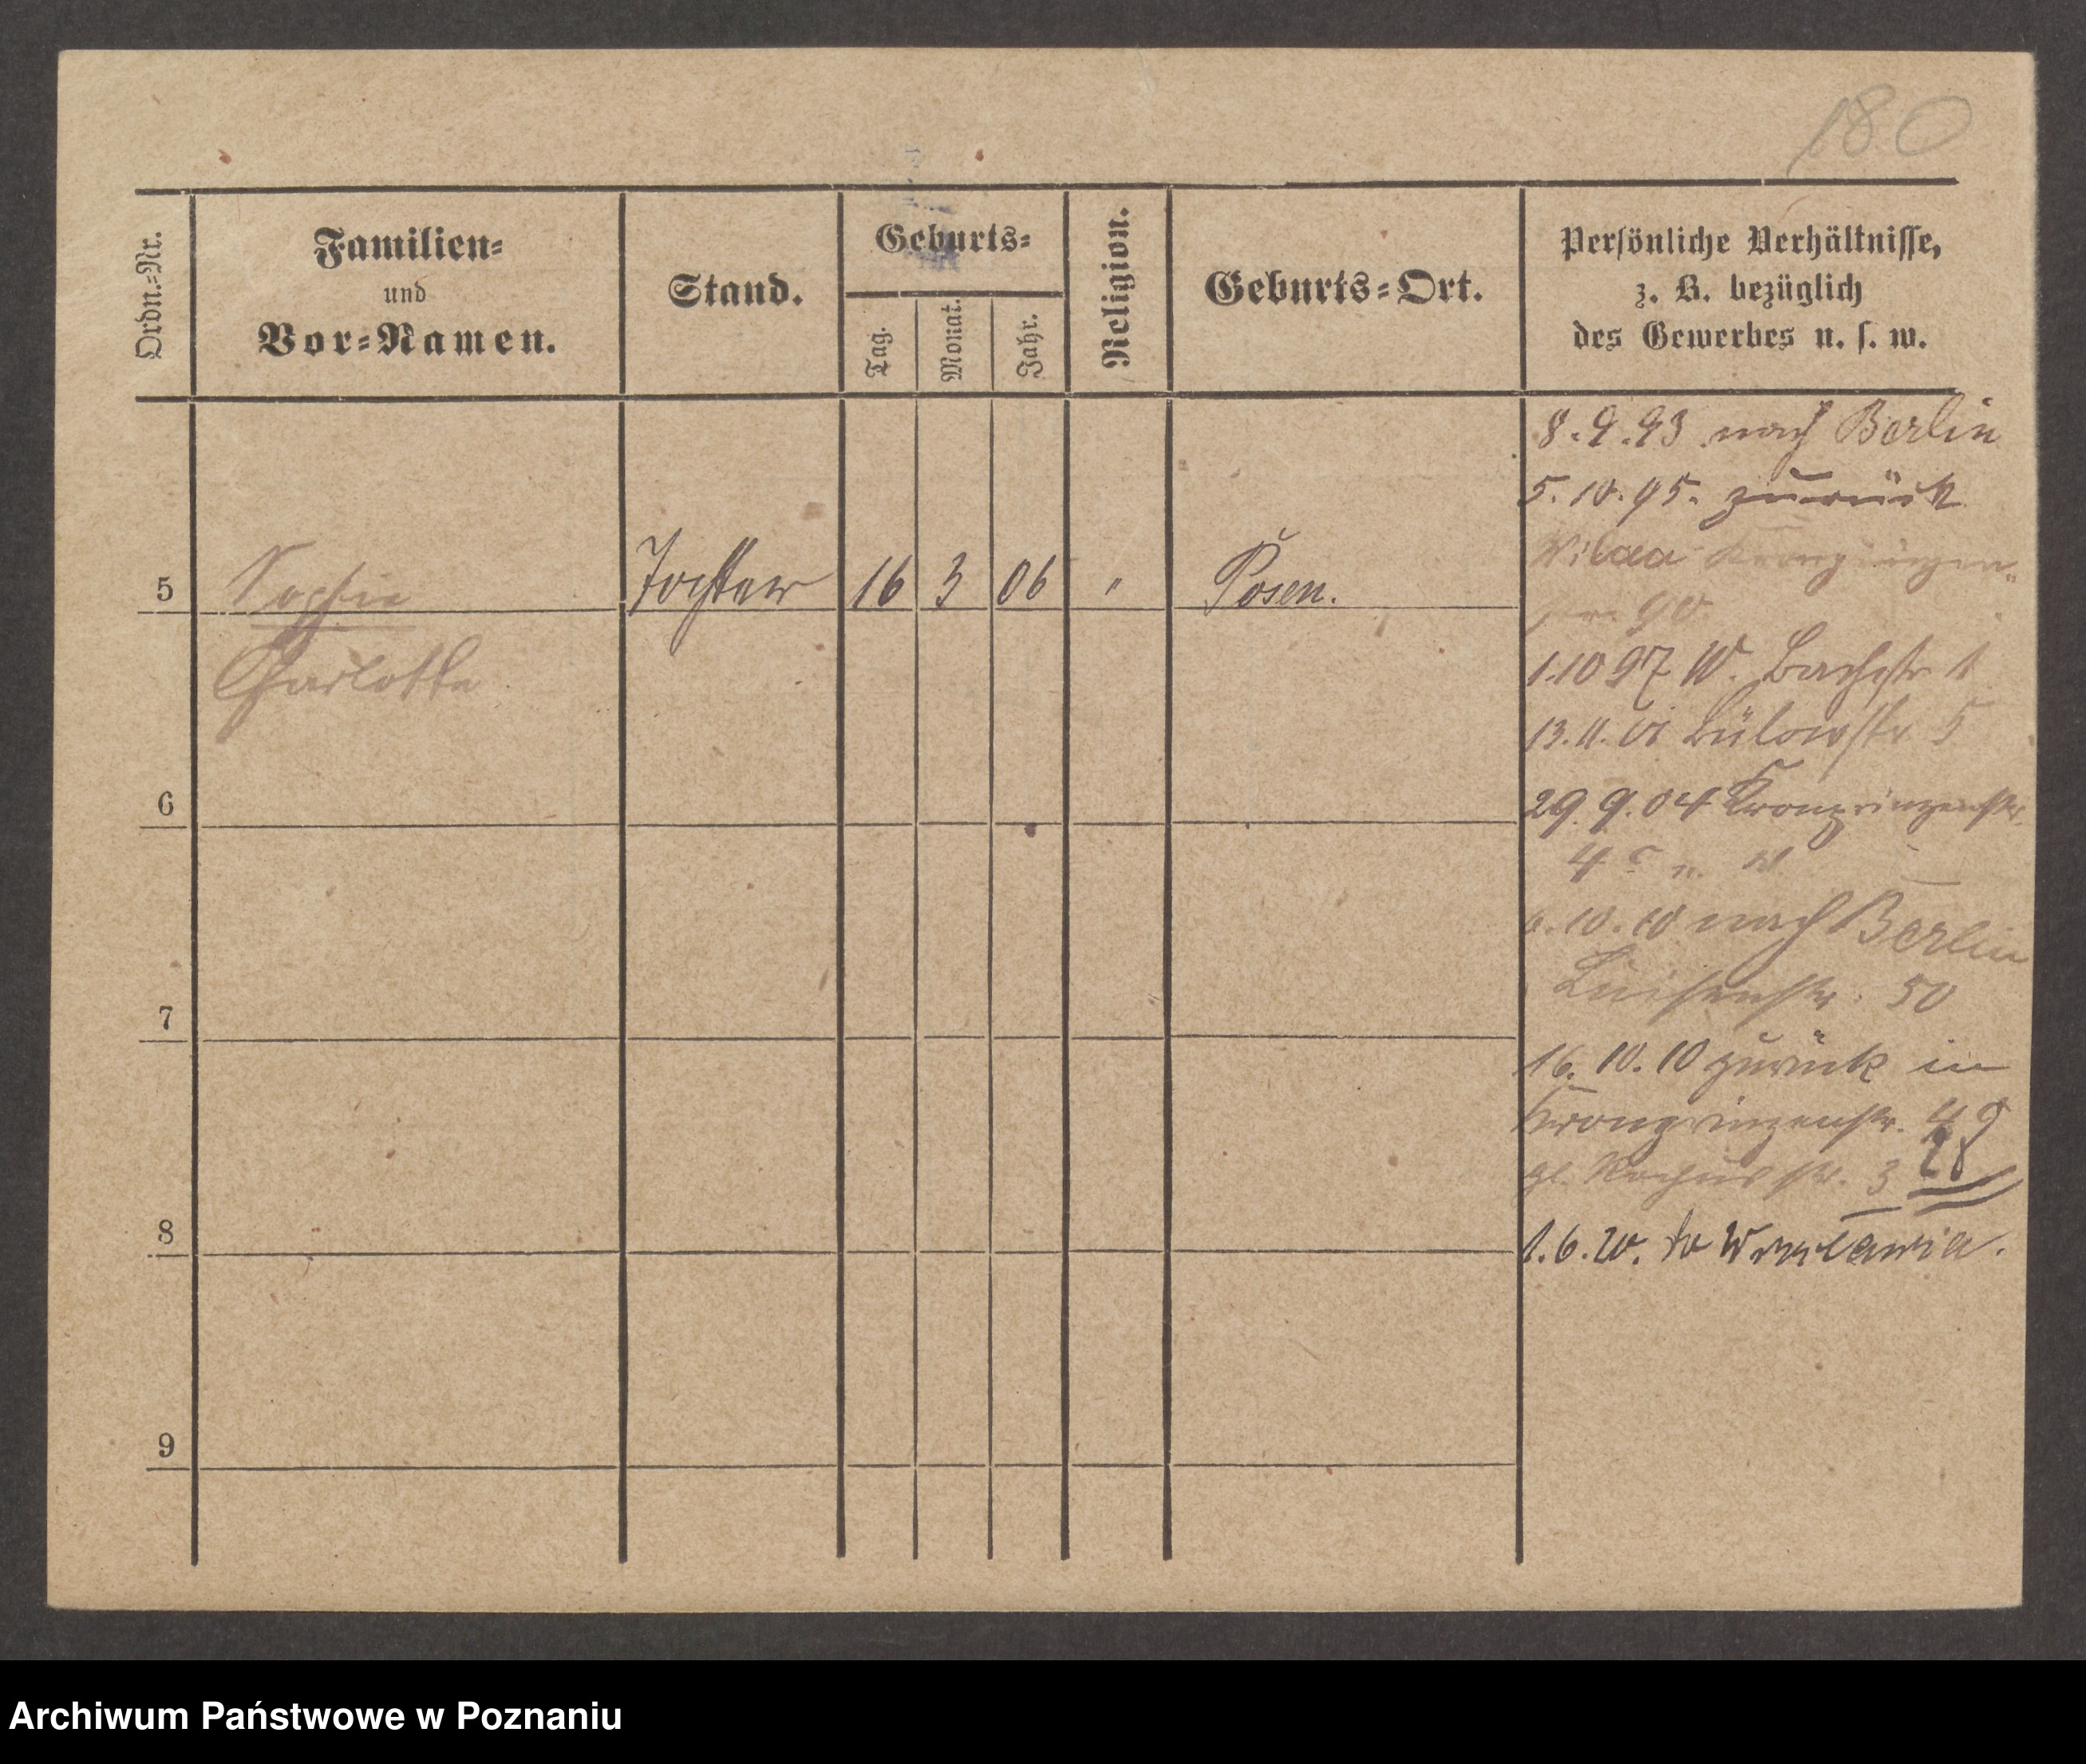 180
Ordn.-Nr.
Familien-
und
Vor-Namen.
Stand.
Geburts-
Tag.
Monat.
Jahr.
Religion.
Geburts-Ort.
Persönliche Verhältnisse,
z. B. bezüglich
des Gewerbes u. s. w.
5
Sophie
Charlotte
Tochter
16
3
06
"
Posen.
6
7
8
9
8.9.93 nach Berlin
5.10.95. zurück
Wilda Kronprinzen-
90
1.10 97 W. Bachstr 1
13.11.01 Bülowstr 5
29.9.04 Kronprinzenstr.
4
10.10 nach Berlin
Luisenstr. 50
16.10.10 zurück in
Kronprinzenstr. 49
3 28
1.6.20. do Wrocławia.
Archiwum Państwowe w Poznaniu